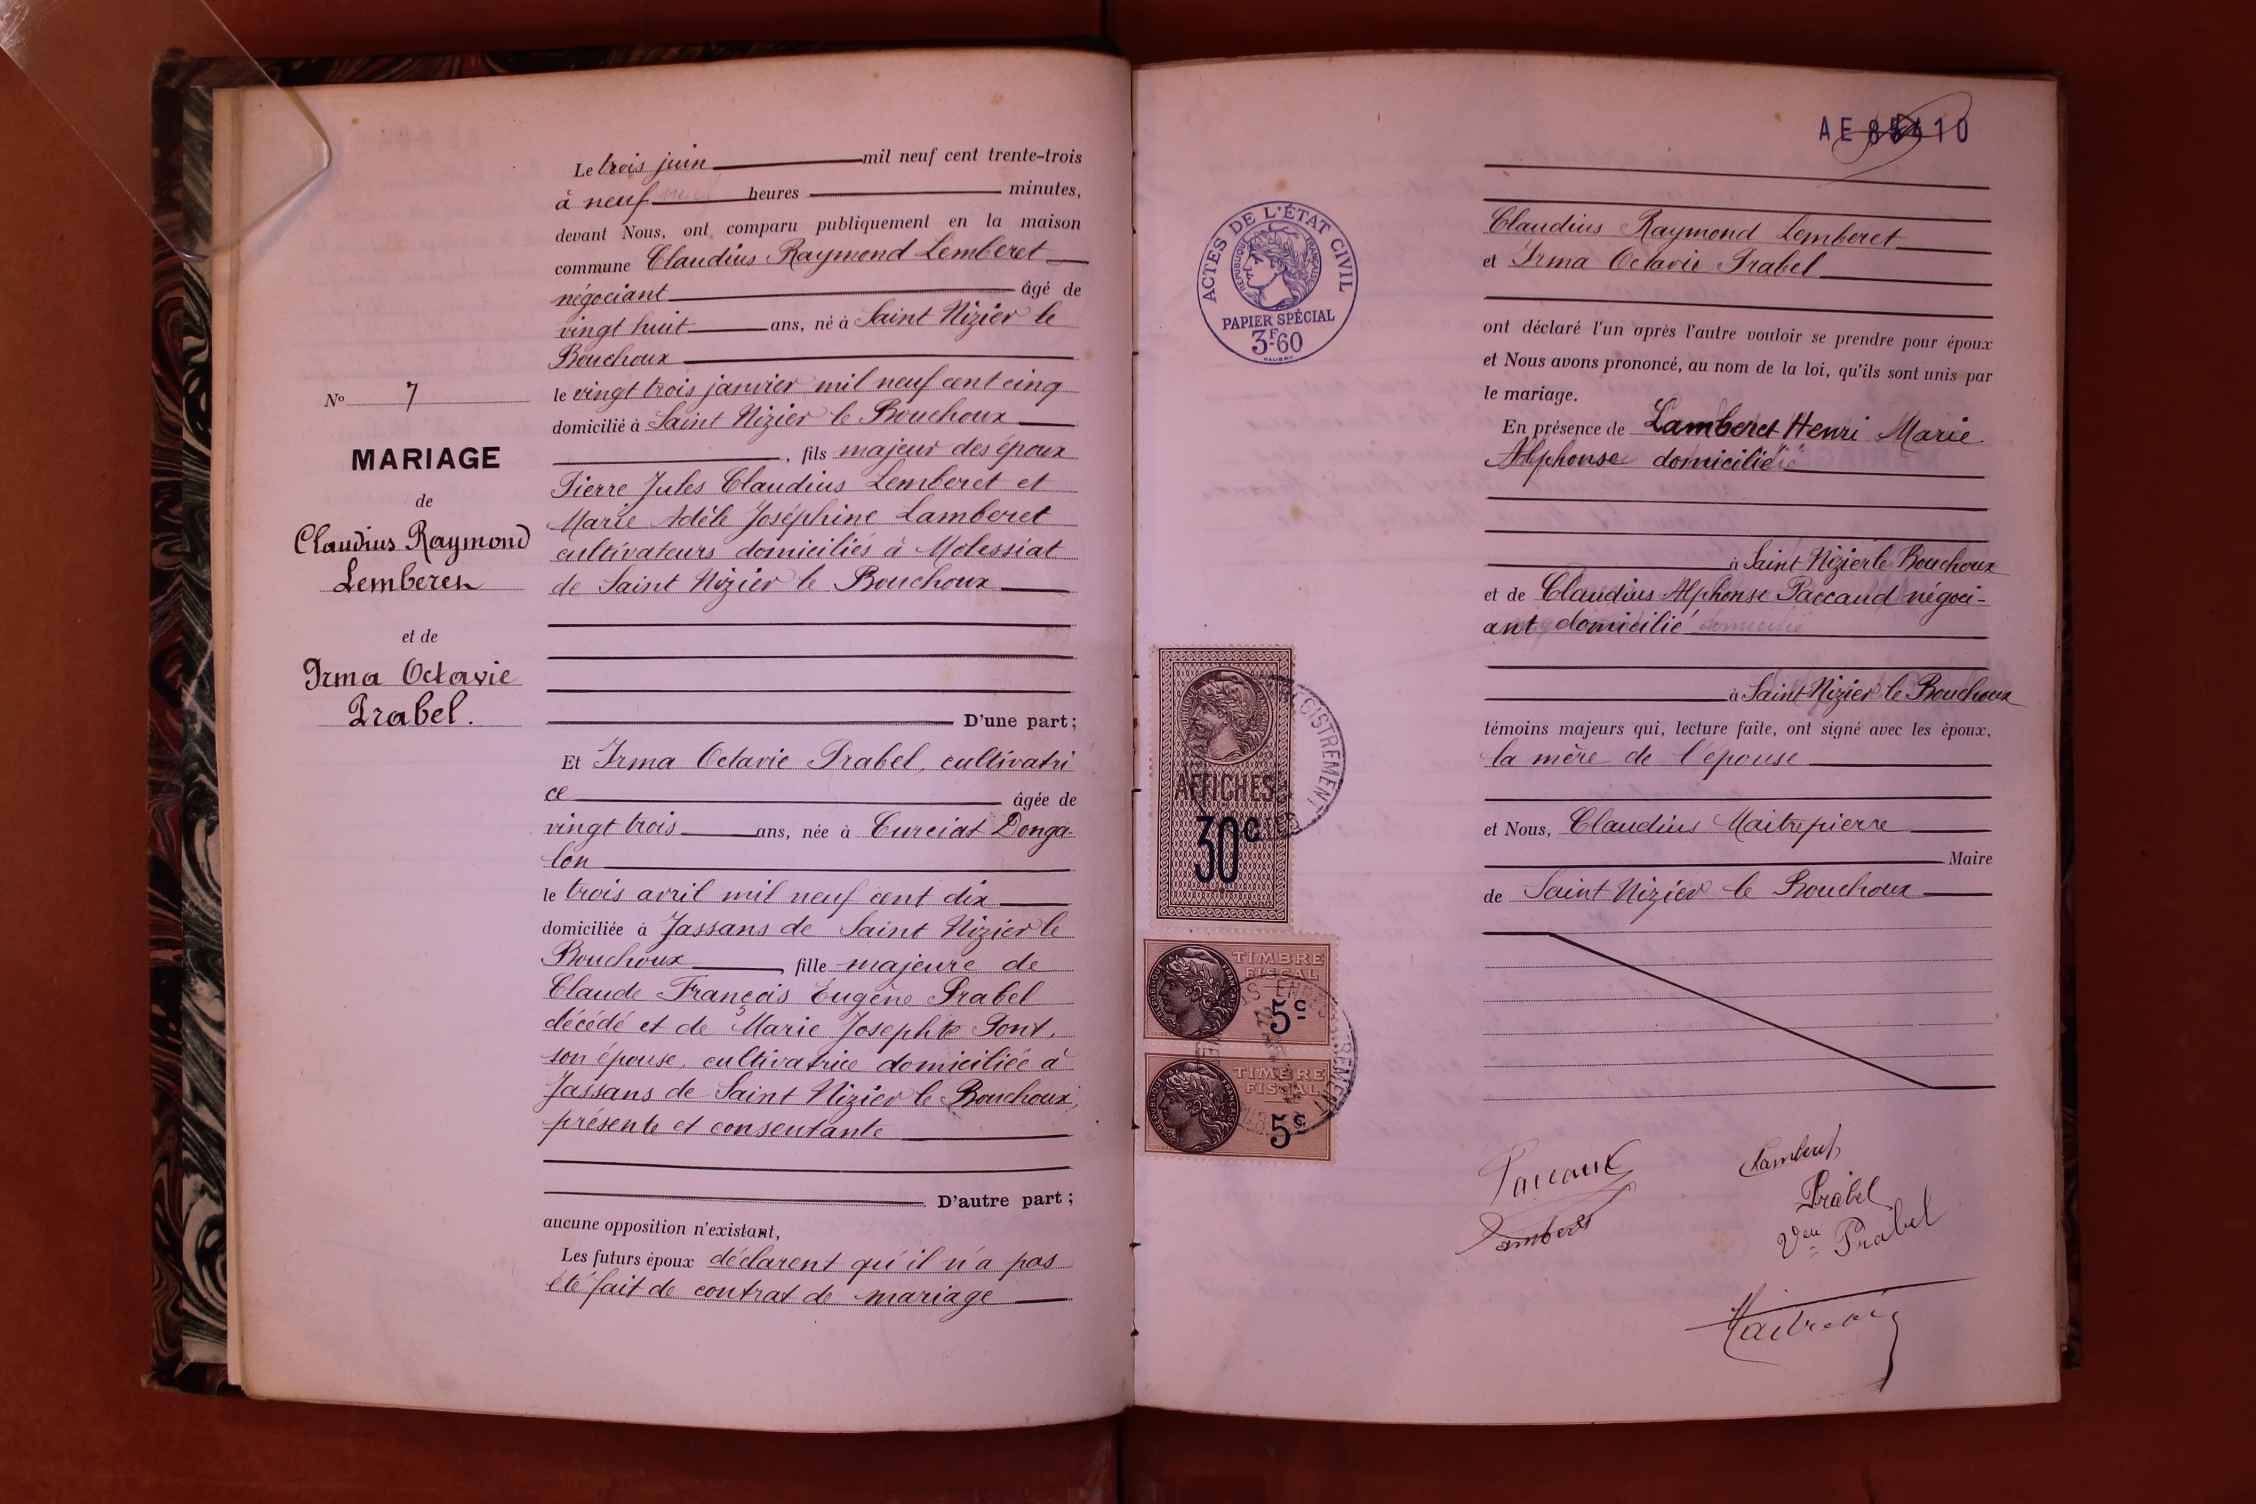 Le trois juin mil neuf cent trente-trois
à neuf heures minutes,
devant Nous, ont comparu publiquement en la maison
commune Claudius Raymond Lemberet
négociant âgé de
vingt huit ans, né à Saint Nizier le
Bouchoux
le vingt trois janvier mil neuf cent cinq
domicilié à Saint Nizier le Bouchoux
, fils majeur des époux
Pierre Jules Claudius Lemberet et
Marie Adèle Joséphine Lamberet
cultivateurs domiciliés à Molessiat
de Saint Nizier le Bouchoux
D'une part;
No 7
MARIAGE
de
Claudius Raymond
Lemberet
et de
Irma Octavie
Prabel.
Et Irma Octavie Prabel, cultivatri
ce âgée de
vingt trois ans, née à Curciat Donga-
lon
le trois avril mil neuf cent dix
domiciliée à Jassans de Saint Nizier le
Bouchoux, fille majeure de
Claude François Eugène Prabel
décédé et de Marie Josephte Pont,
son épouse, cultivatrice domiciliée à
Jassans de Saint Nizier le Bouchoux,
présente et consentante
D'autre part;
aucune opposition n'existant,
Les futurs époux déclarent qu'il n'a pas
été fait de contrat de mariage
ACTES DE L'ÉTAT CIVIL
RÉPUBLIQUE FRANÇAISE
PAPIER SPÉCIAL
3F60
AFFICHES
30c
TIMBRE
FISCAL
5c
TIMBRE
FISCAL
5c
AE 10
Claudius Raymond Lemberet
et Irma Octavie Prabel
ont déclaré l'un après l'autre vouloir se prendre pour époux
et Nous avons prononcé, au nom de la loi, qu'ils sont unis par
le mariage.
En présence de Lamberet Henri Marie
Alphonse domicilié
à Saint Nizier le Bouchoux
et de Claudius Alphonse Paccaud négoci-
ant domicilié
à Saint Nizier le Bouchoux
témoins majeurs qui, lecture faite, ont signé avec les époux,
la mère de l'épouse
et Nous, Claudius Maitrepierre
Maire
de Saint Nizier le Bouchoux
Paccaud
Lemberet
Prabel
Vve Prabel